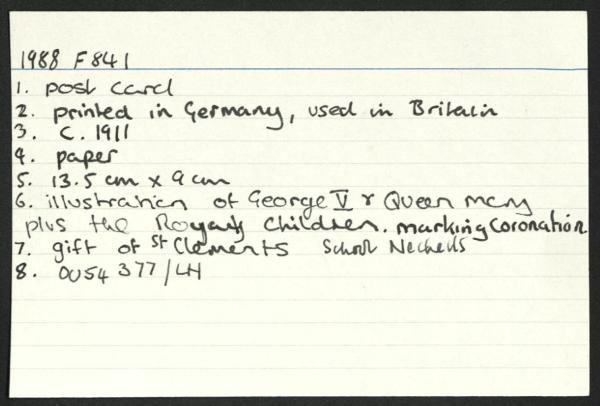 1988 F841
1. post card
2. printed in Germany, used in Britain
3. C. 1911
4. paper
5. 13.5 cm x 9 cm
6. illustration of George V & Queen Mary
plus the Royal Children. marking Coronation
7. gift of St Clements School Nechells
8. 0054 377/LH